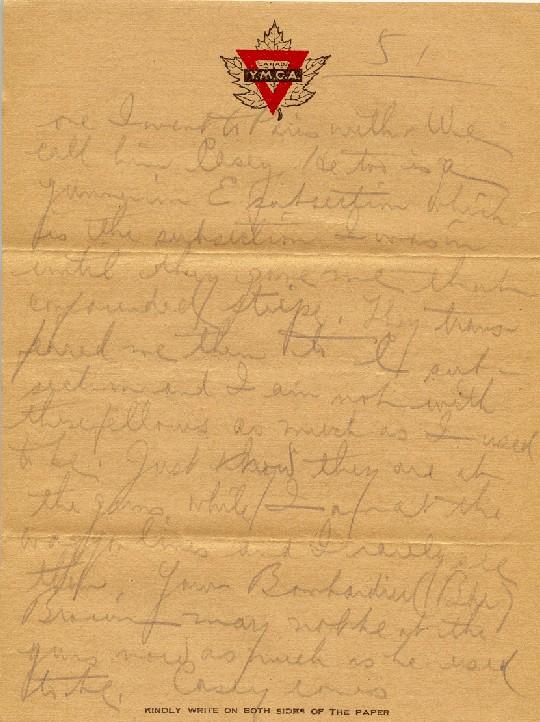 5/
CANADIAN
Y.M.C.A.
one I went to Paris with. We
call him Casey. He too is a
gunner in E subsection which
is the subsection I was in
until they gave me that
confounded stripe. They trans-
fered me then to C sub-
section and I am not with
these fellows as much as I used
to be. Just now they are at
the guns while I am at the
waggon lines and I rarely see
them. Your Bombardier (Bdr)
Brown may not be at the
guns now as much as he used
to be. Casey
KINDLY WRITE ON BOTH SIDES OF THE PAPER